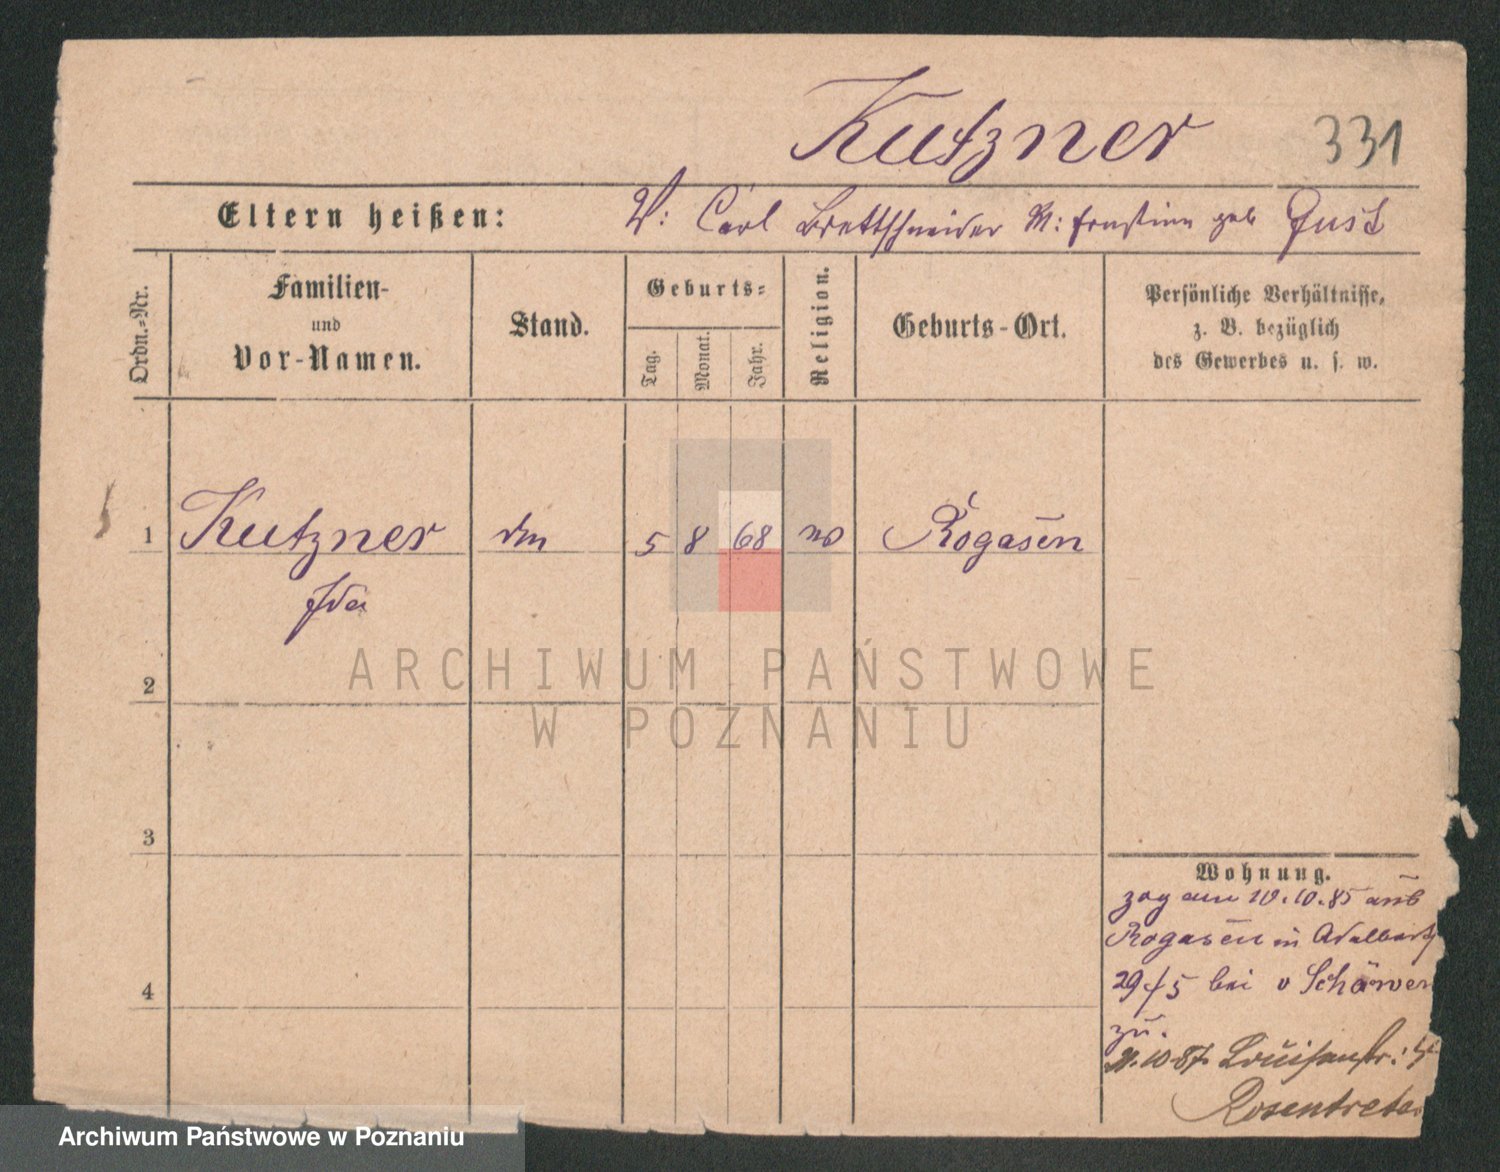 Kutzner 331
Eltern heißen: V: Carl Brettschneider M: Ernstine geb Just
Ordn.-Nr.
Familien-
und
Vor-Namen.
Stand.
Geburts-
Tag.
Monat.
Jahr.
Religion.
Geburts-Ort.
Persönliche Verhältnisse,
z. B. bezüglich
des Gewerbes u. s. w.
1 Kutzner 5 8 68 Rogasen
Ida
ARCHIWUM PAŃSTWOWE
W POZNANIU
2
3
4
Wohnung.
zog am 10.10.85 aus
Rogasen in
29/5 bei v
zu.
10.87 Louisenstr:
Rosentreter
Archiwum Państwowe w Poznaniu